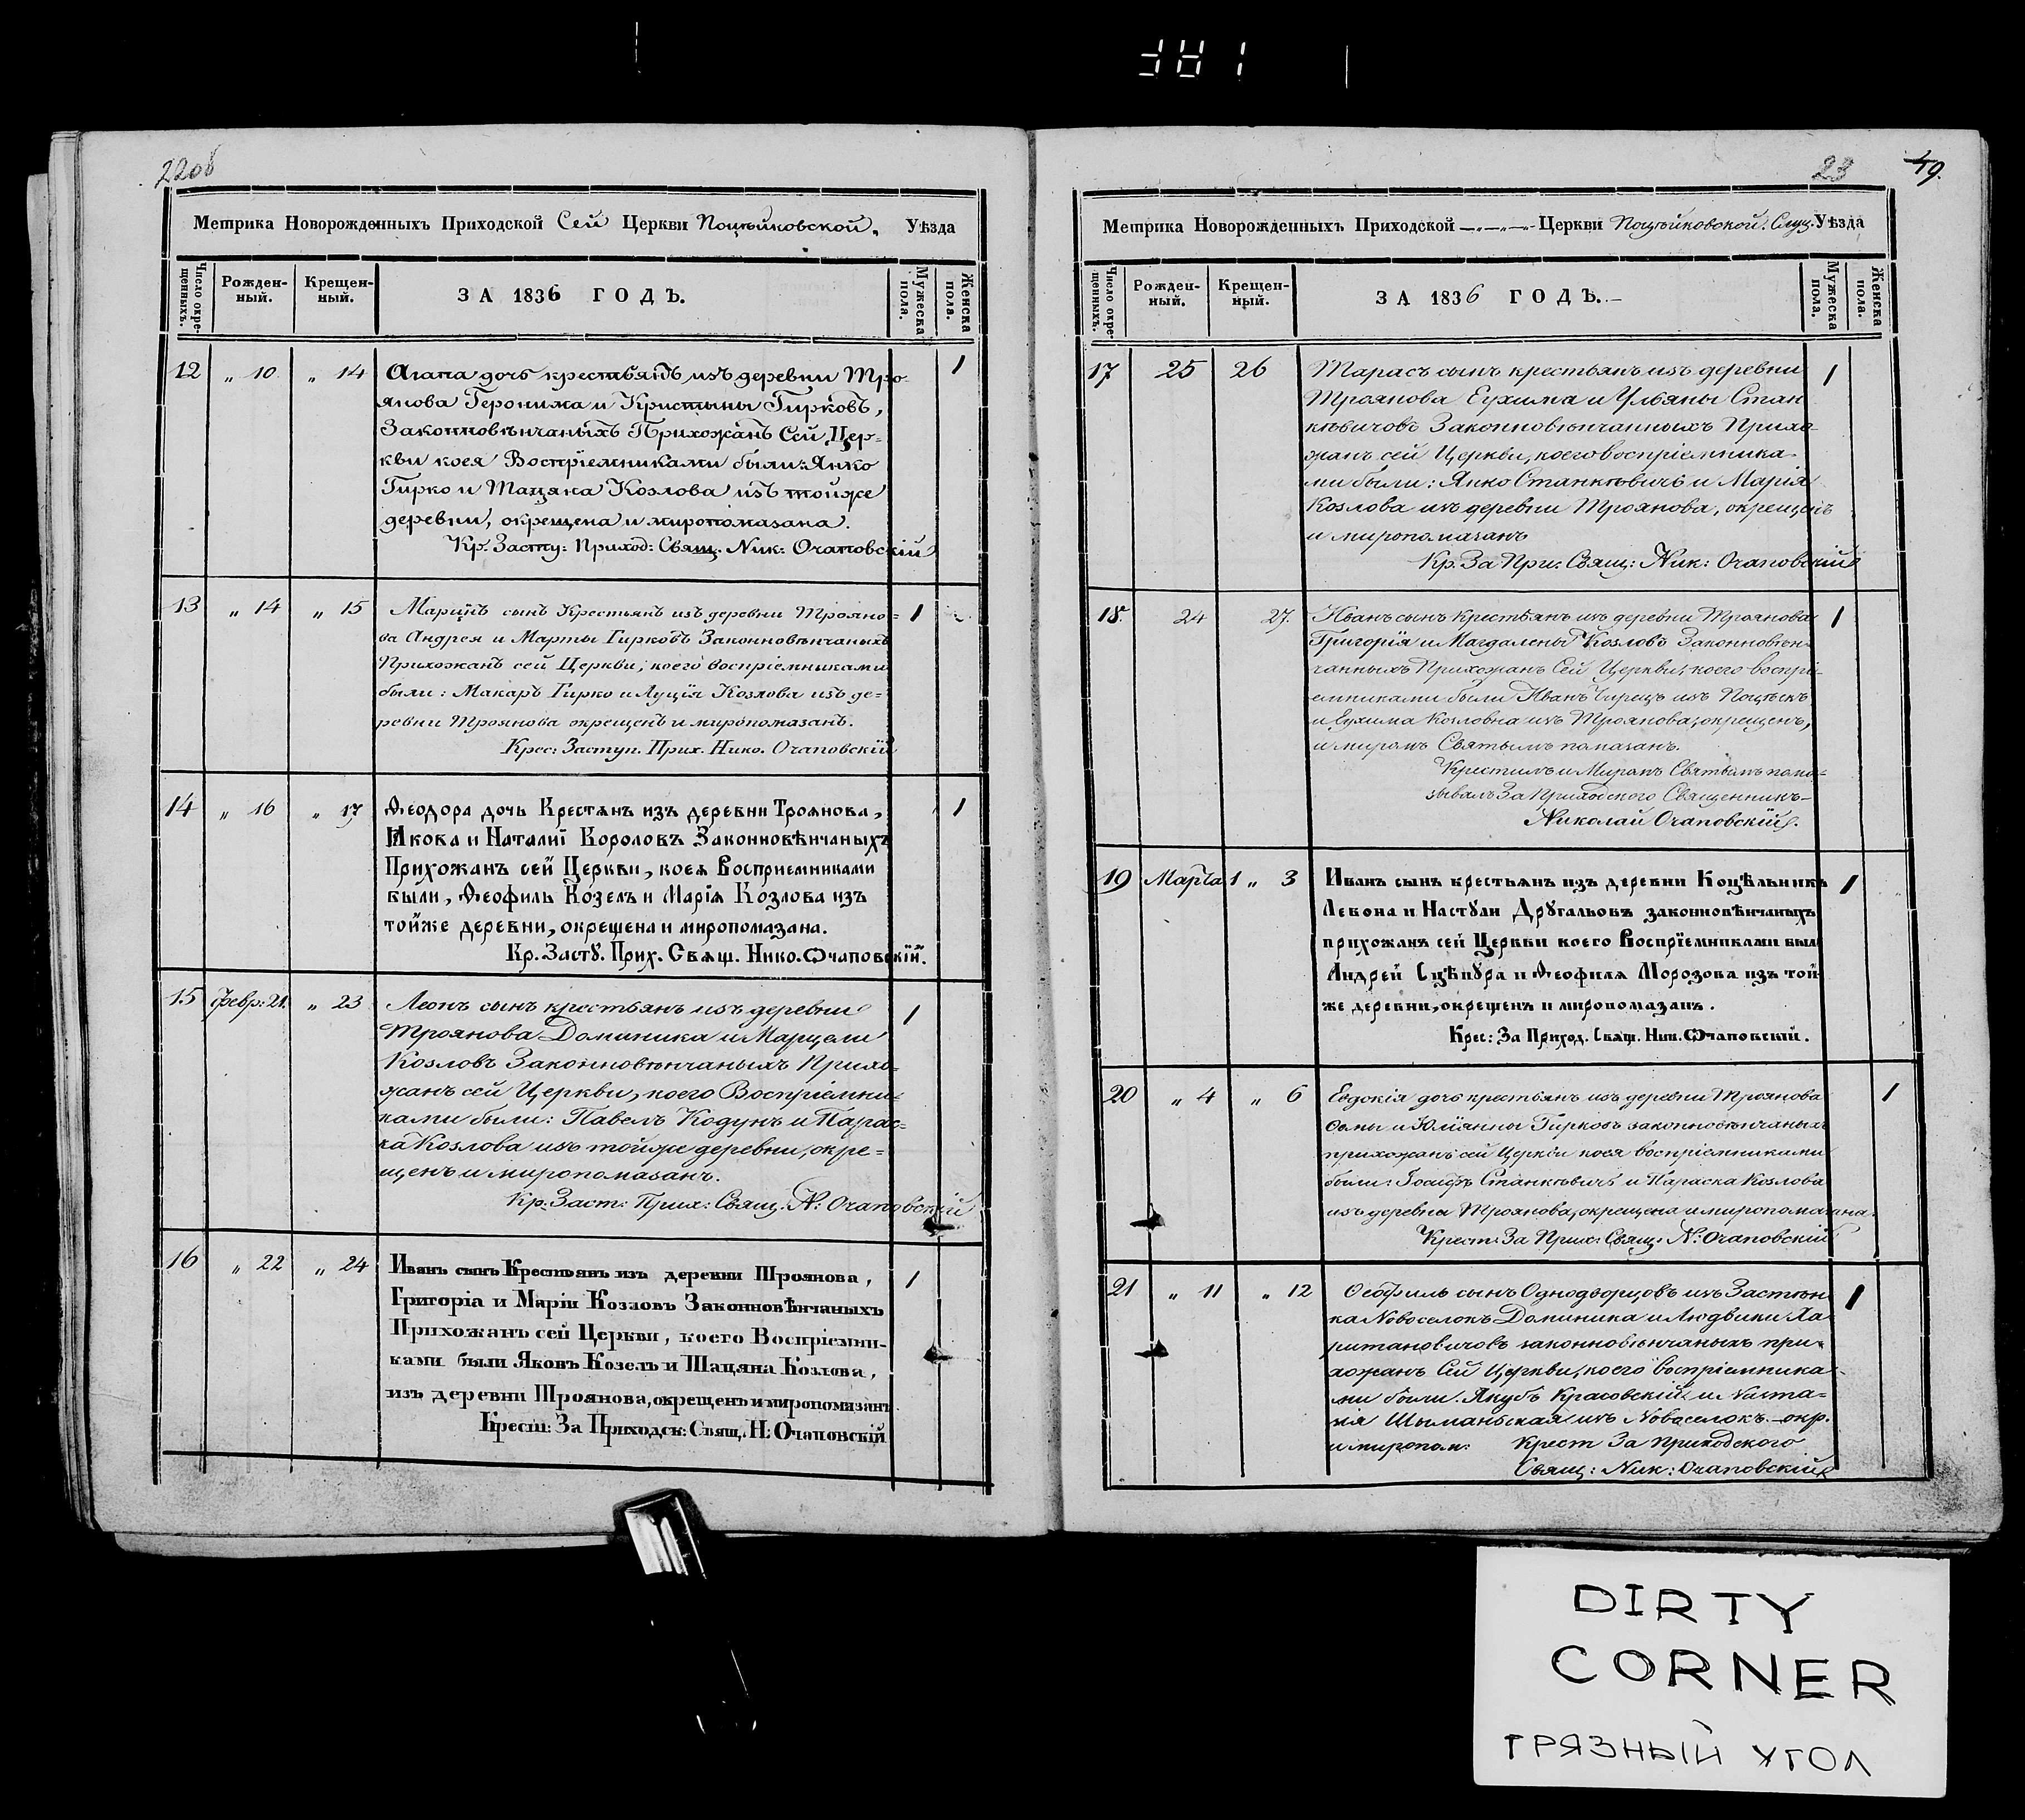 381
22об
Метрика Новорожденныхъ Приходской Сей Церкви Поцѣйковской. Уѣзда
Число окрещенныхъ.
Рожденный.
Крещенный.
ЗА 1836 ГОДЪ.
Мужеска пола.
Женска пола.
12 „ 10 „ 14 Агапа дочь крестьянъ изъ деревни Тро- 1
янова Геронима и Кристыны Гирковъ,
Законновѣнчаныхъ Прихожанъ Сей Цер-
кви коея Воспріемниками были: Янко
Гирко и Тацяна Козлова изъ тойже
деревни, окрещена и миропомазана.
Кр. Засту: Приход: Свящ. Ник: Очаповскій
13 „ 14 „ 15 Марцинъ сынъ Крестьянъ изъ деревни Трояно- 1
ва Андрея и Марты Гирковъ Законновѣнчаныхъ
Прихожанъ сей Церкви, коего воспріемниками
были: Макаръ Гирко и Луція Козлова изъ де-
ревни Троянова окрещенъ и миропомазанъ.
Крес: Заступ. Прих. Нико. Очаповскій
14 „ 16 „ 17 Ѳеодора дочь Крестянъ изъ деревни Троянова, 1
Якова и Наталиї Королювъ Законновѣнчаныхъ
Прихожанъ сей Церкви, коея Восприемниками
были, Ѳеофиль Козелъ и Марія Козлова изъ
тойже деревни, окрещена и миропомазана.
Кр. Застꙋ. Прих. Свящ. Нико. Ѡчаповскїй.
15 Февр: 21. „ 23 Леонъ сынъ крестьянъ изъ деревни 1
Троянова Доминика и Марцели
Козловъ Законновѣнчаныхъ Прихо-
жанъ сей Церкви, коего Воспріемни-
ками были: Павелъ Кодунъ и Парас-
ка Козлова изъ тойже деревни, окре-
щенъ и миропомазанъ.
Кр. Заст: Прих: Свящ. N: Очаповскій
16 „ 22 „ 24 Иванъ сынъ Крестьянъ изъ деревни Троянова, 1
Григорія и Маріи Козловъ Законновѣнчаныхъ
Прихожанъ сей Церкви, коего Воспріемни-
ками были Яковъ Козелъ и Тацяна Козлова,
изъ деревни Троянова, окрещенъ и миропомазанъ.
Крест: За Приходск: Свящ. Н: Очаповскій
23 49.
Метрика Новорожденныхъ Приходской —„—„— Церкви Поцѣйковской. Слуц. Уѣзда
Число окрещенныхъ.
Рожденный.
Крещенный.
ЗА 1836 ГОДЪ.
Мужеска пола.
Женска пола.
17 25 26 Тарасъ сынъ крестьянъ изъ деревни 1
Троянова Еухима и Ульяны Стан
кѣвичовъ Законновѣнчанныхъ Прихо-
жанъ сей Церкви, коего воспріемника-
ми были: Янко Станкѣвичъ и Марія
Козлова изъ деревни Троянова, окрещенъ
и миропомазанъ
Кр. За При: Свящ: Ник: Очаповскій
18. 24 27. Иванъ сынъ Крестьянъ изъ деревни Троянова 1
Григорія и Магдалены Козловъ Законновѣн-
чанныхъ Прихожанъ Сей Церкви, коего воспрі-
емниками были Иванъ изъ
и Еухима Козловна изъ Троянова, окрещенъ,
и миромъ Святымъ помазанъ.
Крестилъ и Миромъ Святымъ пома-
зывалъ За Приходского Священникъ-
Николай Очаповскій.
19 Марта 1 „ 3 Иванъ сынъ крестьянъ изъ деревни Коцѣльникъ 1
Левона и Настꙋли Дрꙋгальовъ законновѣнчаныхъ
прихожанъ сей Церкви коего Воспрїемниками был
Андрей Сцѣпꙋра и Ѳеофиля Морозова изъ той
же деревни, окрещенъ и миропомазанъ.
Крес: За Приход. Свящ. Ник. Ѡчаповскій.
20 „ 4 „ 6 Евдокія дочь крестьянъ изъ деревни Троянова 1
Ѳомы и Юліянны Гирковъ законновѣнчаныхъ
прихожанъ сей Церкви коея воспріемниками
были: Іосифъ Станкѣвичъ и Параска Козлова
изъ деревни Троянова, окрещена и миропомазана.
Крест: За Прих: Свящ: N: Очаповскій
21 „ 11 „ 12 Ѳеофиль сынъ Однодворцовъ изъ Застѣн- 1
ка Новоселокъ Доминика и Людвики Ха
ритановичовъ законновѣнчаныхъ при-
хожанъ Сей Церкви, коего воспріемника-
ми были. Якубъ Красовскій и
Шыманьская изъ Новоселокъ. - окр.
и миропом: Крест За приходского
Свящ: Ник: Очаповскій
DIRTY
CORNER
ГРЯЗНЫЙ УГОЛ